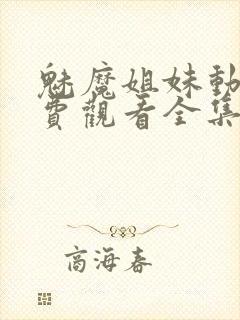 魅魔姐妹動
費觀看全集
商海春